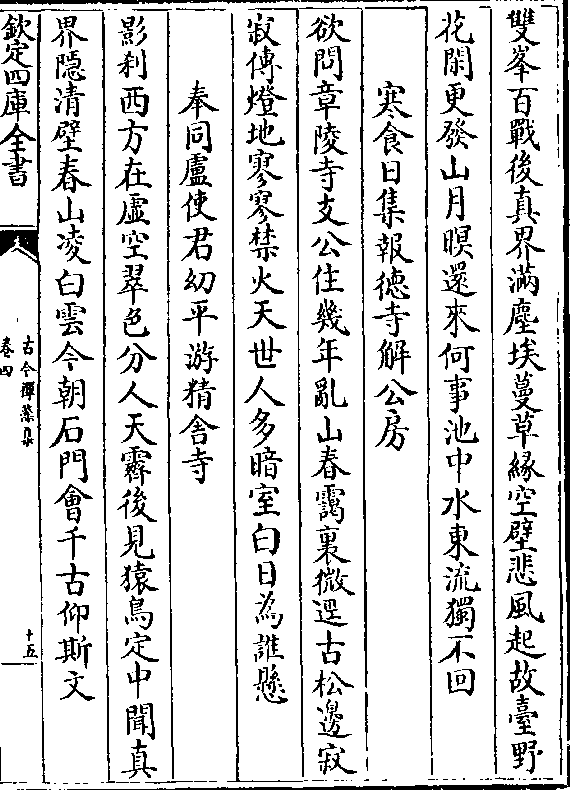 雙峯百戰後真界滿塵埃蔓草緣空壁悲風起故臺野
花閑更發山月暝還來何事池中水東流獨不回
寒食日集報徳寺解公房
欲問章陵寺支公住幾年亂山春靄裏微逕古松邊寂
寂傳燈地寥寥禁火天世人多暗室白日為誰懸
奉同盧使君幼平游精舎寺
影刹西方在虛空翠色分人天霽後見猿鳥定中聞真
界隠清壁春山凌白雲今朝石門會千古仰斯文
欽定四庫全書
古今禪藻集
卷四
十五